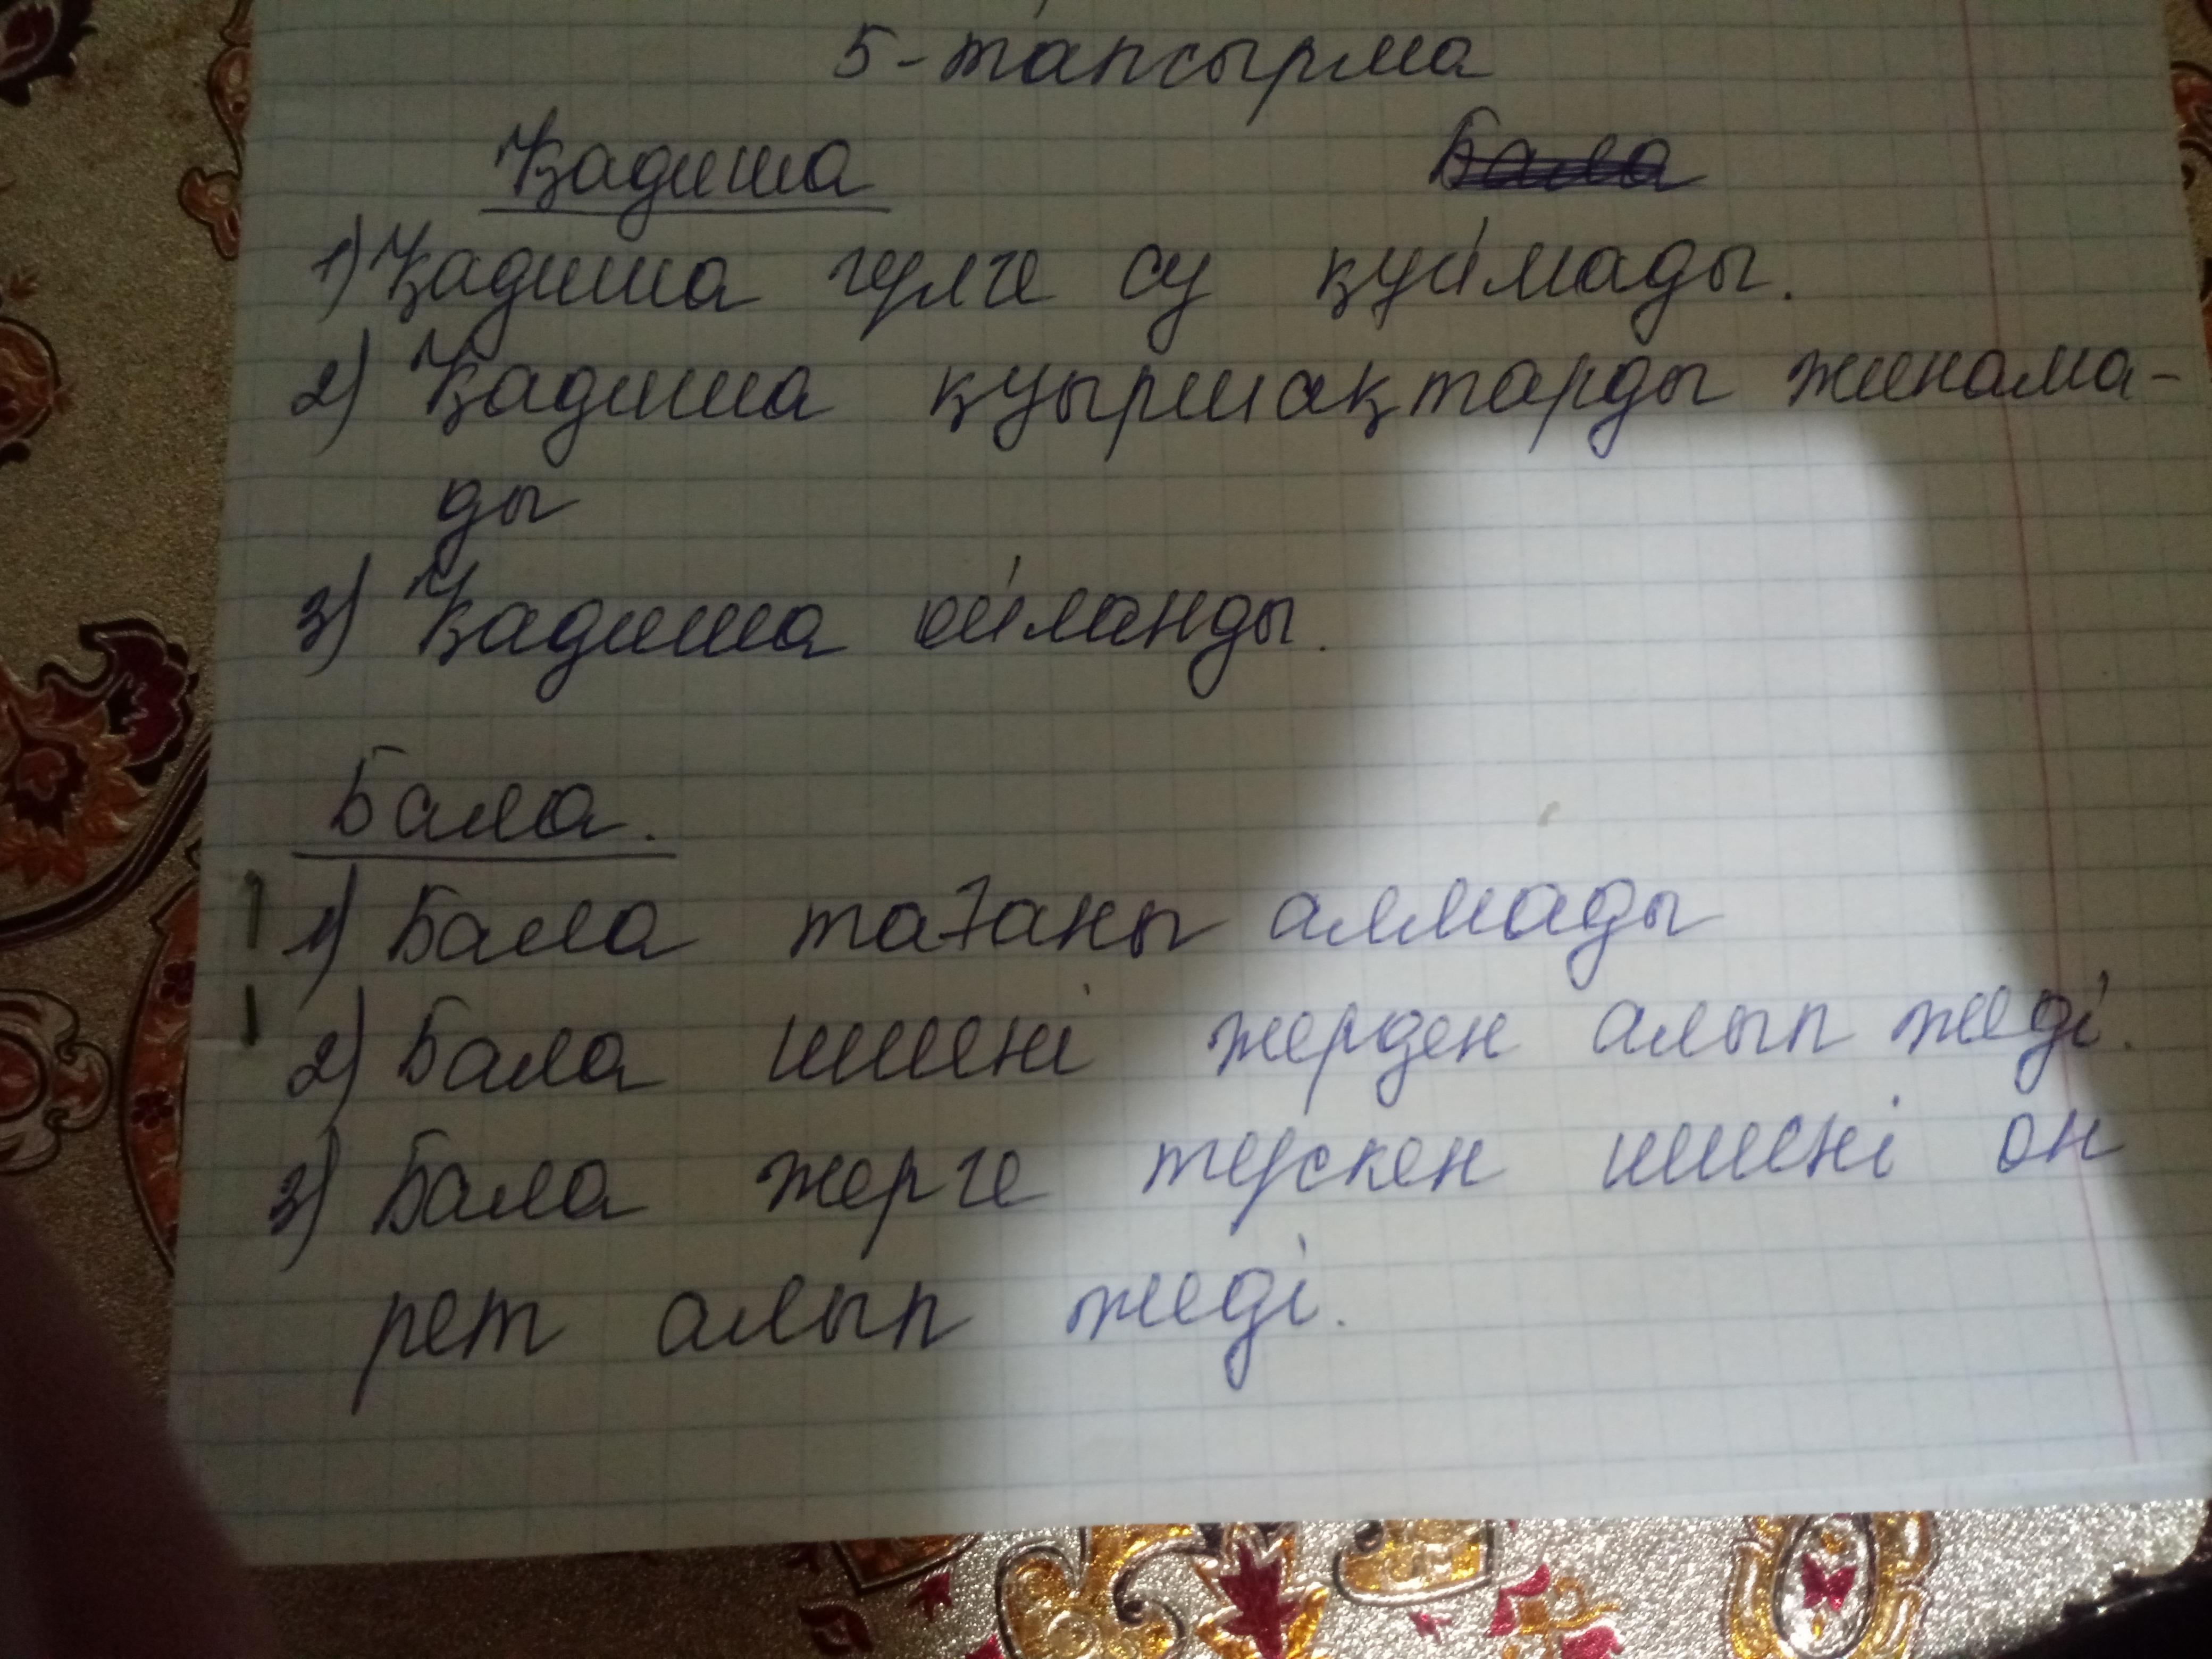 5-тапсырма
Қадиша
1) Қадиша гүлге су құймады.
2) Қадиша қуыршақтарды жинама-
ды
3) Қадиша ойланды.
Бала.
1) Бала тағаны алмады
2) Бала шиені жерден алып жеді.
3) Бала жерге түскен шиені он
рет алып жеді.